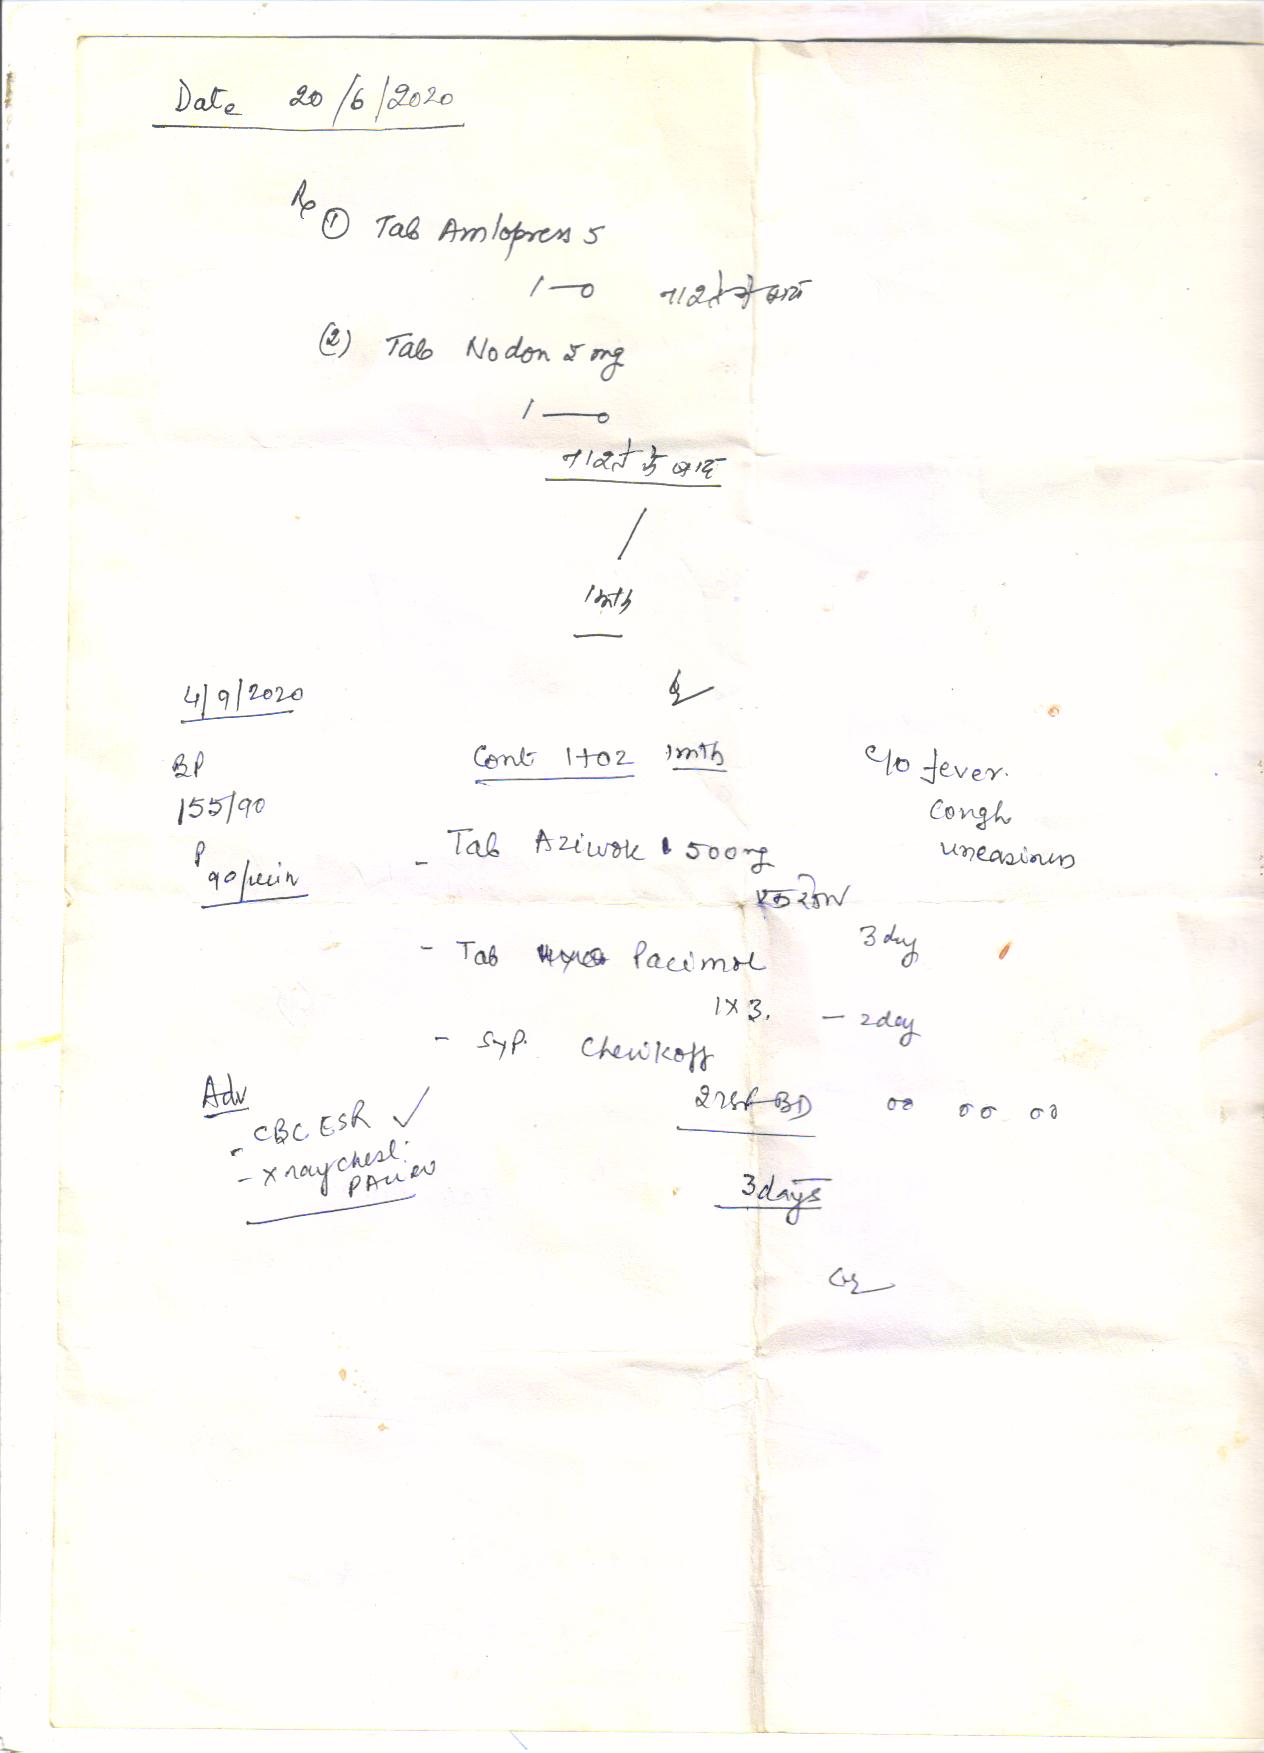 Date 20/6/2020
Rx ① Tab Amlopress 5
1—0 नाश्ते के बाद
(2) Tab Nodon 5 mg
1—0
नाश्ते के बाद
1mth
4/9/2020
BP
155/90
P 90/min
Cont 1+02 1mth
c/o fever.
Cough
uneasiness
- Tab Aziwok 500mg
एक रोज
3 day
- Tab Pacimol
1x3. — 2day
- Syp. Cherikoff
BD 00 00 00
3days
Adv
- CBC ESR ✓
- X ray chest
PA view